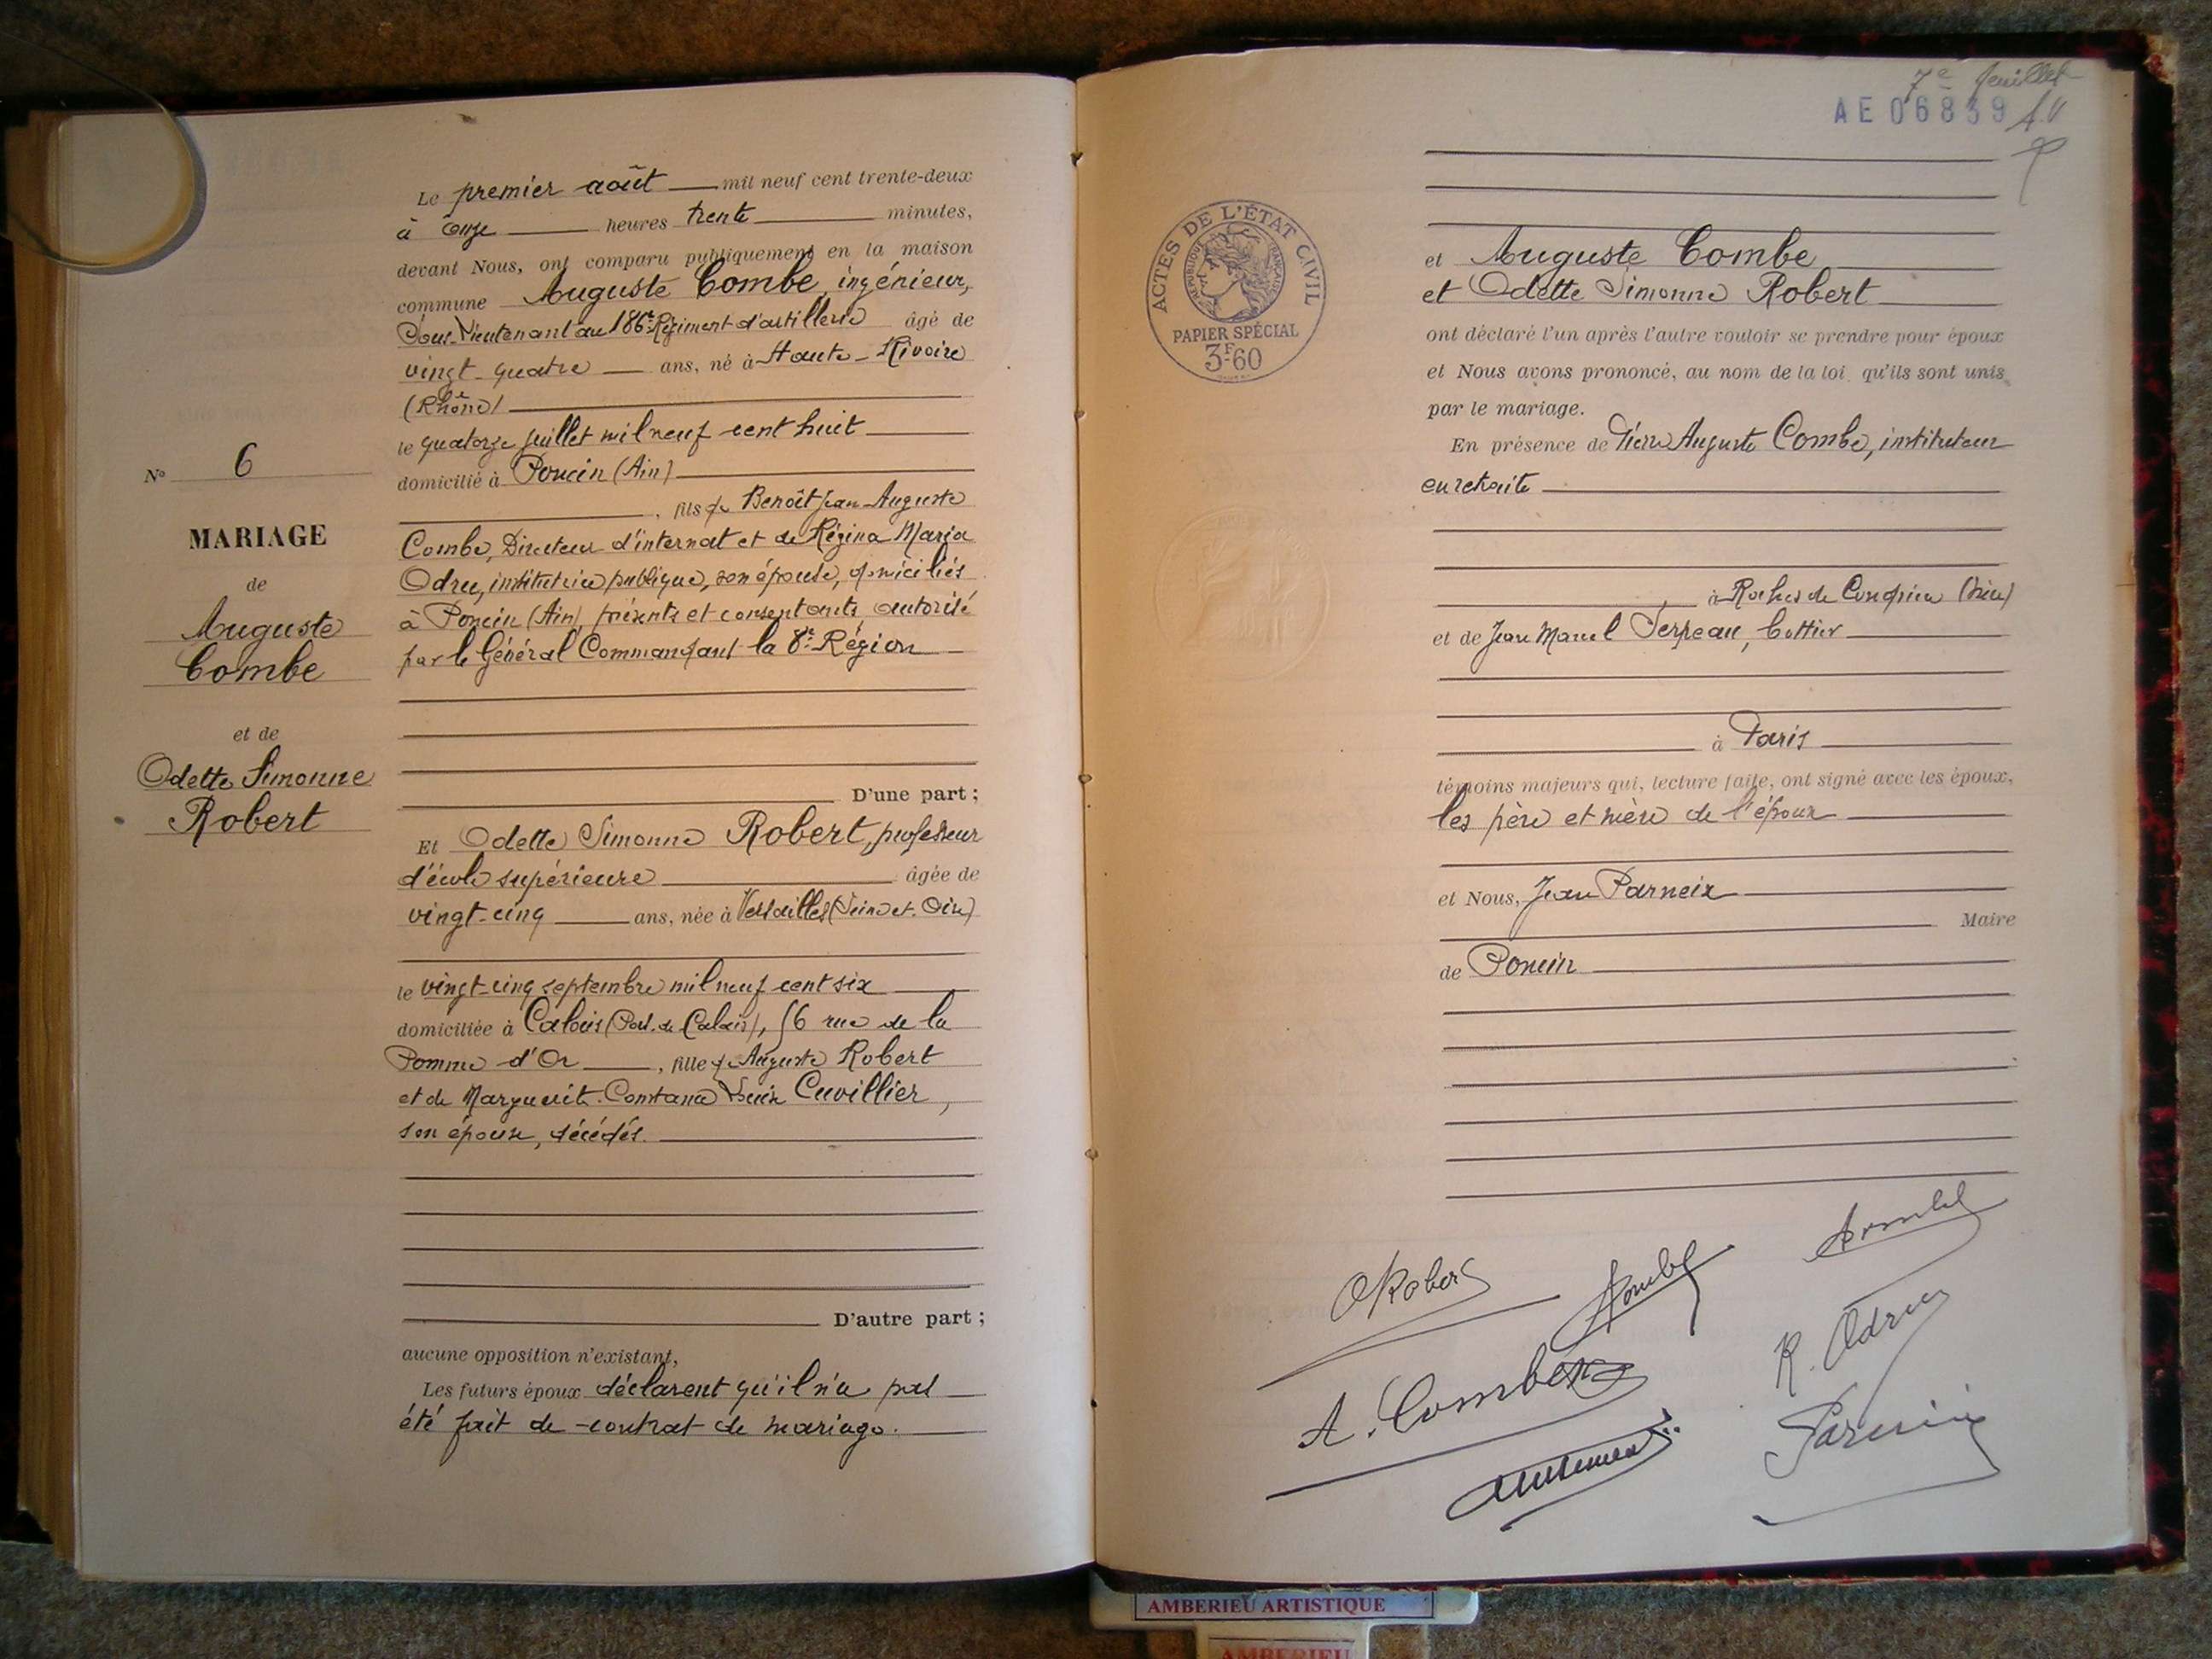 Le premier août mil neuf cent trente-deux
à onze heures trente minutes,
devant Nous, ont comparu publiquement en la maison
commune Auguste Combe, ingénieur,
Sous-Lieutenant au 186e Régiment d'artillerie âgé de
vingt-quatre ans, né à Haute-Rivoire
(Rhône)
le quatorze juillet mil neuf cent huit
domicilié à Poncin (Ain)
, fils de Benoît Jean Auguste
Combe, Directeur d'internat et de Régina Maria
Odru, institutrice publique, son épouse, domiciliés
à Poncin (Ain), présents et consentants, autorisé
par le Général Commandant la 8e Région
D'une part ;
Et Odette Simonne Robert, professeur
d'école supérieure âgée de
vingt-cinq ans, née à Versailles (Seine et Oise)
le vingt-cinq septembre mil neuf cent six
domiciliée à Calais (Pas de Calais), 56 rue de la
Pomme d'Or, fille de Auguste Robert
et de Marguerite Constance Cuvillier,
son épouse, décédés.
D'autre part ;
aucune opposition n'existant,
Les futurs époux déclarent qu'il n'a pas
été fait de contrat de mariage.
N° 6
MARIAGE
de
Auguste
Combe
et de
Odette Simonne
Robert
7e feuillet
AE 06839
ACTES DE L'ÉTAT CIVIL
RÉPUBLIQUE FRANÇAISE
PAPIER SPÉCIAL
3F60
et Auguste Combe
et Odette Simonne Robert
ont déclaré l'un après l'autre vouloir se prendre pour époux
et Nous avons prononcé, au nom de la loi qu'ils sont unis
par le mariage.
En présence de Pierre Auguste Combe, instituteur
en retraite
à Roches de Condrieu (Isère)
et de Jean Marcel Serpeau, bottier
à Paris
témoins majeurs qui, lecture faite, ont signé avec les époux,
les père et mère de l'époux
et Nous, Jean Parneix
Maire
de Poncin
ORobert
Combe
A. Combe
R. Odru
Parneix
AMBERIEU ARTISTIQUE
AMBERIEU